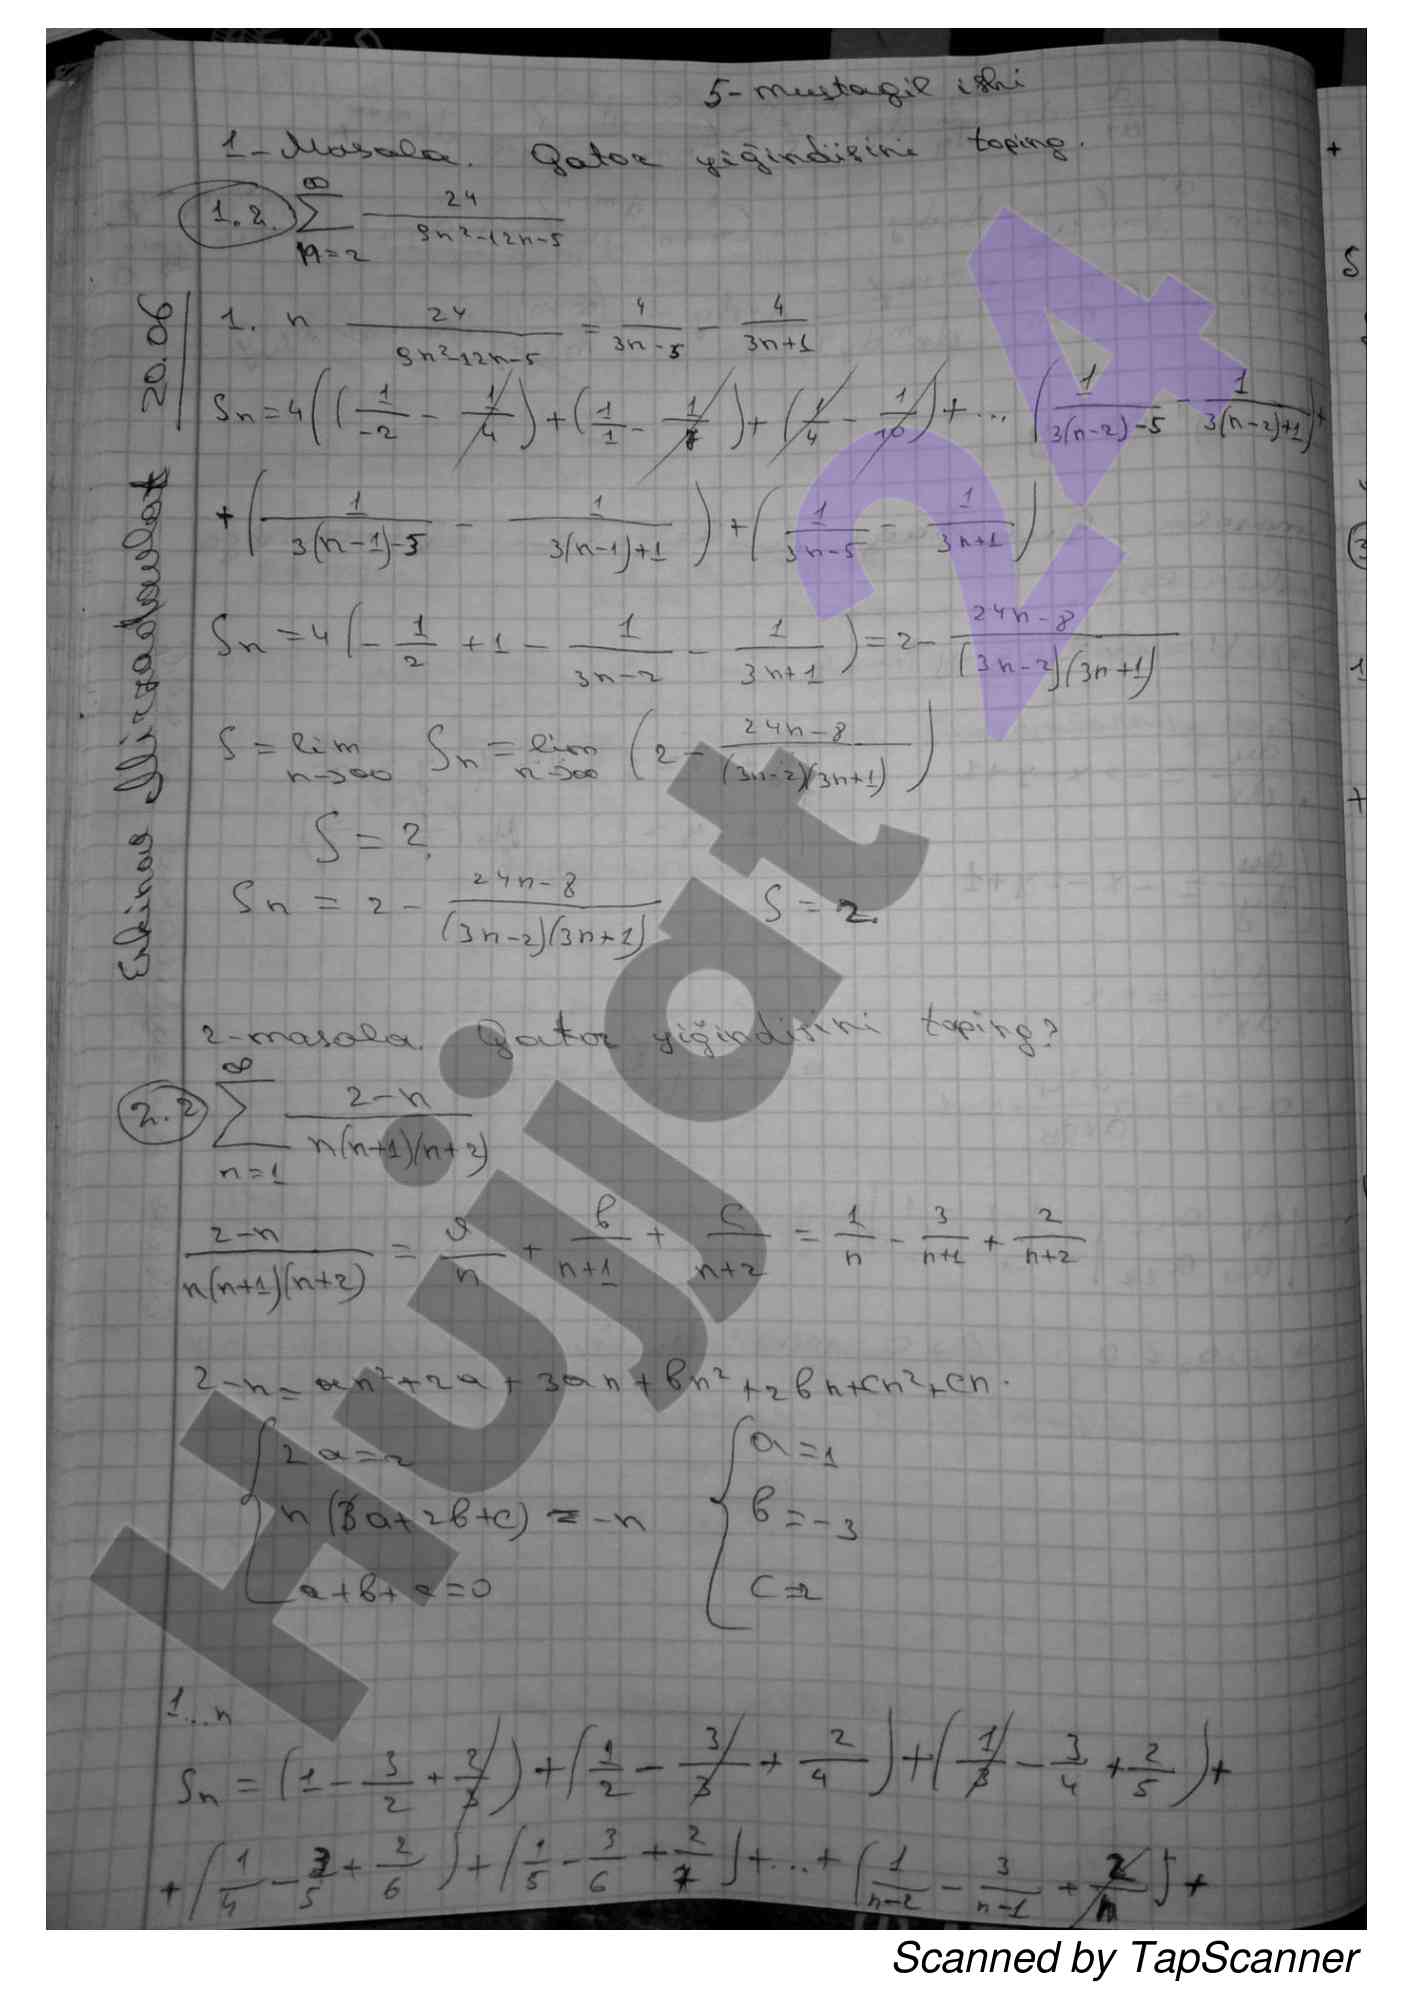 5-mustaqil ishi
1-Masala. Qator yiğindisini toping.
1.2. ∞ ∑ n=2 24 / 9n²-12n-5
1. n 24 / 9n²-12n-5 = 4 / 3n-5 - 4 / 3n+1
Sn = 4((1/-2 - 1/4) + (1/1 - 1/7) + (1/4 - 1/10) + ... (1 / 3(n-2)-5 - 1 / 3(n-2)+1) +
+ (1 / 3(n-1)-5 - 1 / 3(n-1)+1) + (1 / 3n-5 - 1 / 3n+1)
Sn = 4(-1/2 + 1 - 1 / 3n-2 - 1 / 3n+1) = 2 - 24n-8 / (3n-2)(3n+1)
S = lim n→∞ Sn = lim n→∞ (2 - 24n-8 / (3n-2)(3n+1))
S = 2.
Sn = 2 - 24n-8 / (3n-2)(3n+1) S = 2.
2-masala. Qator yiğindisini toping?
2.2 ∞ ∑ n=1 2-n / n(n+1)(n+2)
2-n / n(n+1)(n+2) = a/n + b / n+1 + c / n+2 = 1/n - 3 / n+1 + 2 / n+2
2-n = an²+2a+3an+bn²+2bn+cn²+cn.
2a=2 a=1
n(3a+2b+c) = -n b=-3
a+b+a=0 c=2
1...n
Sn = (1 - 3/2 + 2/3) + (1/2 - 3/3 + 2/4) + (1/3 - 3/4 + 2/5) +
+ (1/4 - 3/5 + 2/6) + (1/5 - 3/6 + 2/7) + ... + (1 / n-2 - 3 / n-1 + 2/n) +
Erkinov Mirzadavlat 20.06
Hujjat 24
Scanned by TapScanner